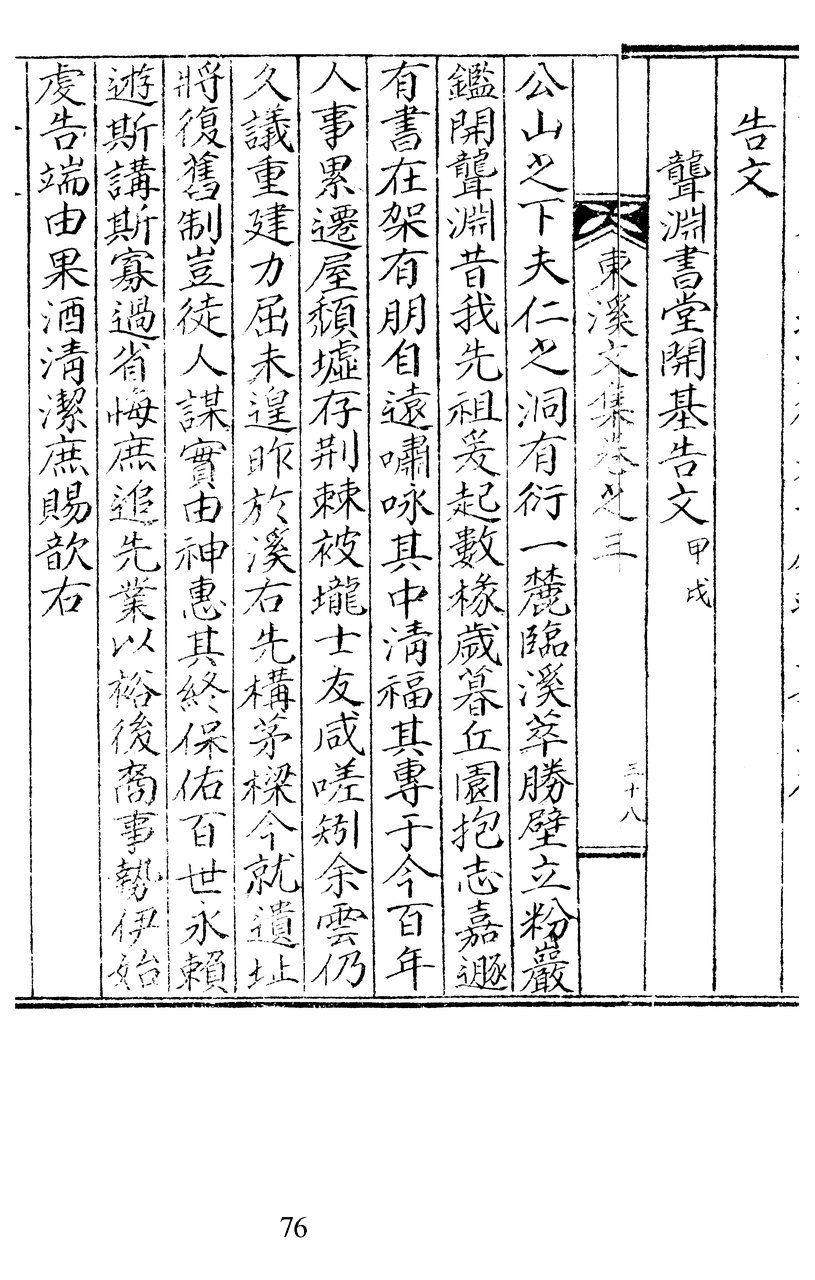 告文
聾淵書堂開基告文 甲戌
東溪文集卷之三 三十八
公山之下夫仁之洞有衍一麓臨溪萃勝壁立粉巖
鑑開聾淵昔我先祖爰起數椽歲暮丘園抱志嘉遯
有書在架有朋自遠嘯咏其中淸福其專于今百年
人事累遷屋頹墟存荆棘被壠士友咸嗟矧余雲仍
久議重建力屈未遑昨於溪右先構茅樑今就遺址
將復舊制豈徒人謀實由神惠其終保佑百世永賴
遊斯講斯寡過省悔庶追先業以裕後裔事勢伊始
虔告端由果酒淸潔庶賜歆右
76